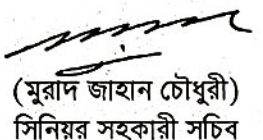 (মুরাদ জাহান চৌধুরী)
সিনিয়র সহকারী সচিব